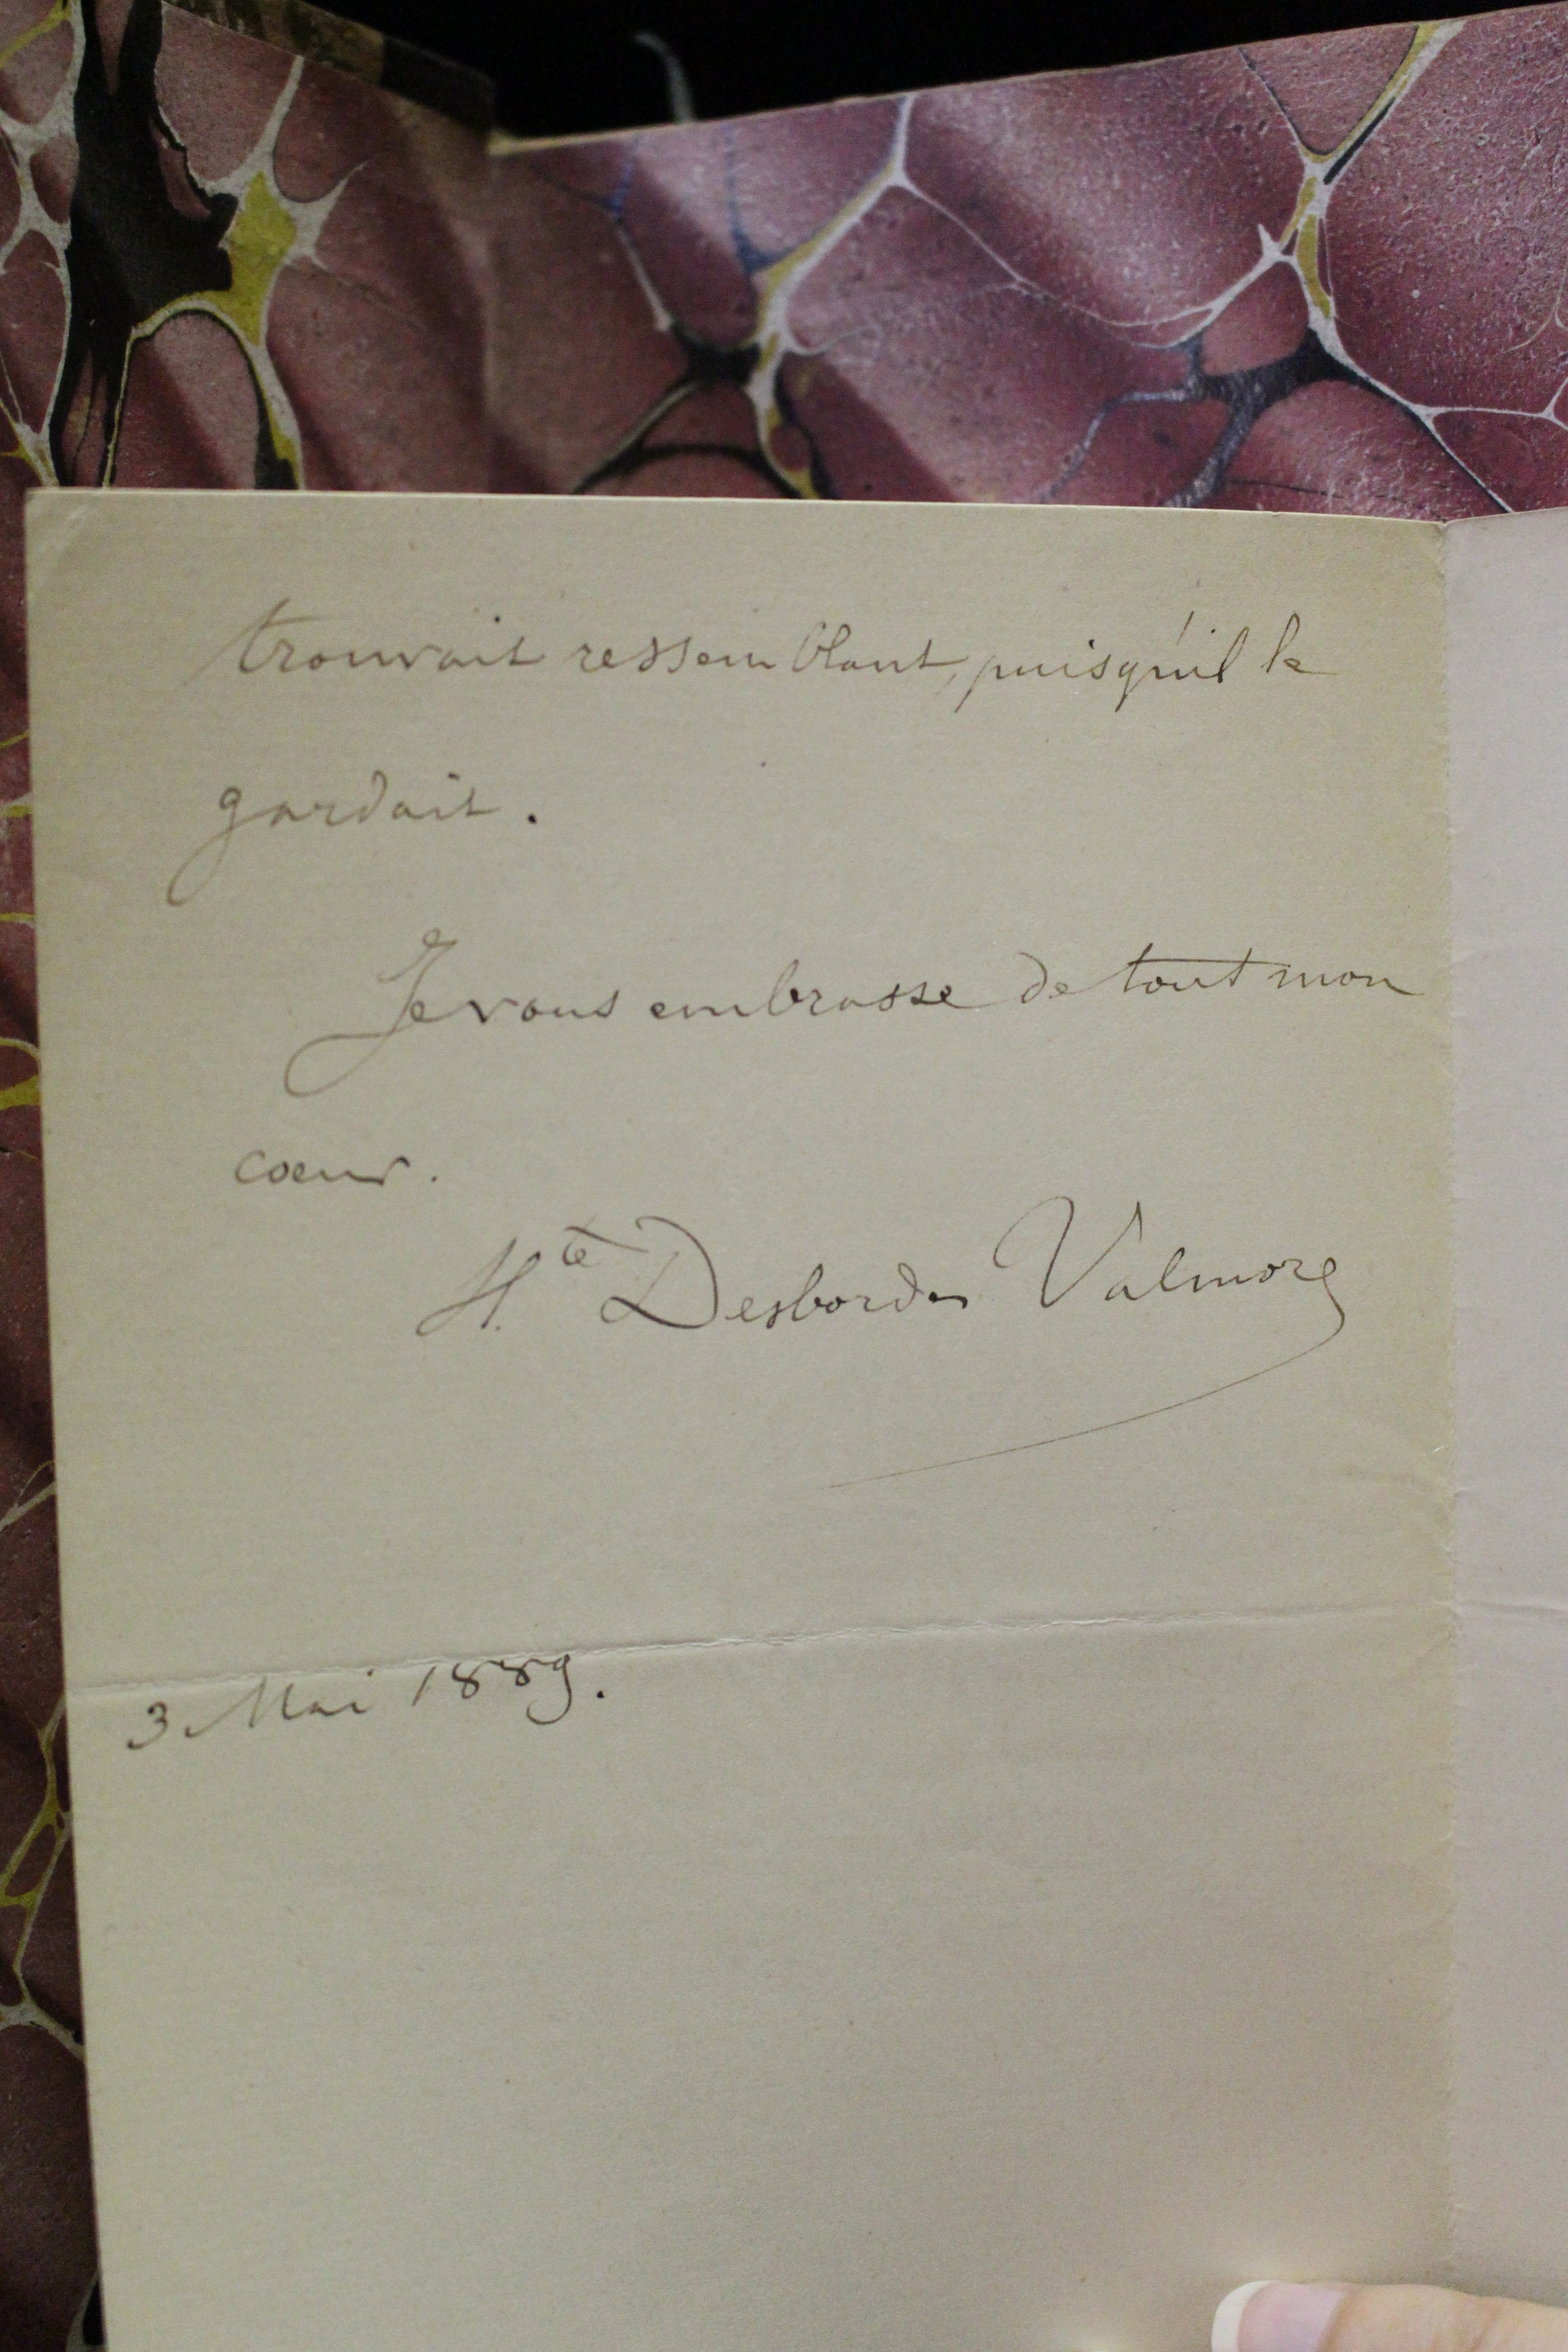 trouvait ressemblant, puisqu'il le
gardait.
Je vous embrasse de tout mon
cœur.
H.te Desbordes Valmore
3 Mai 1889.